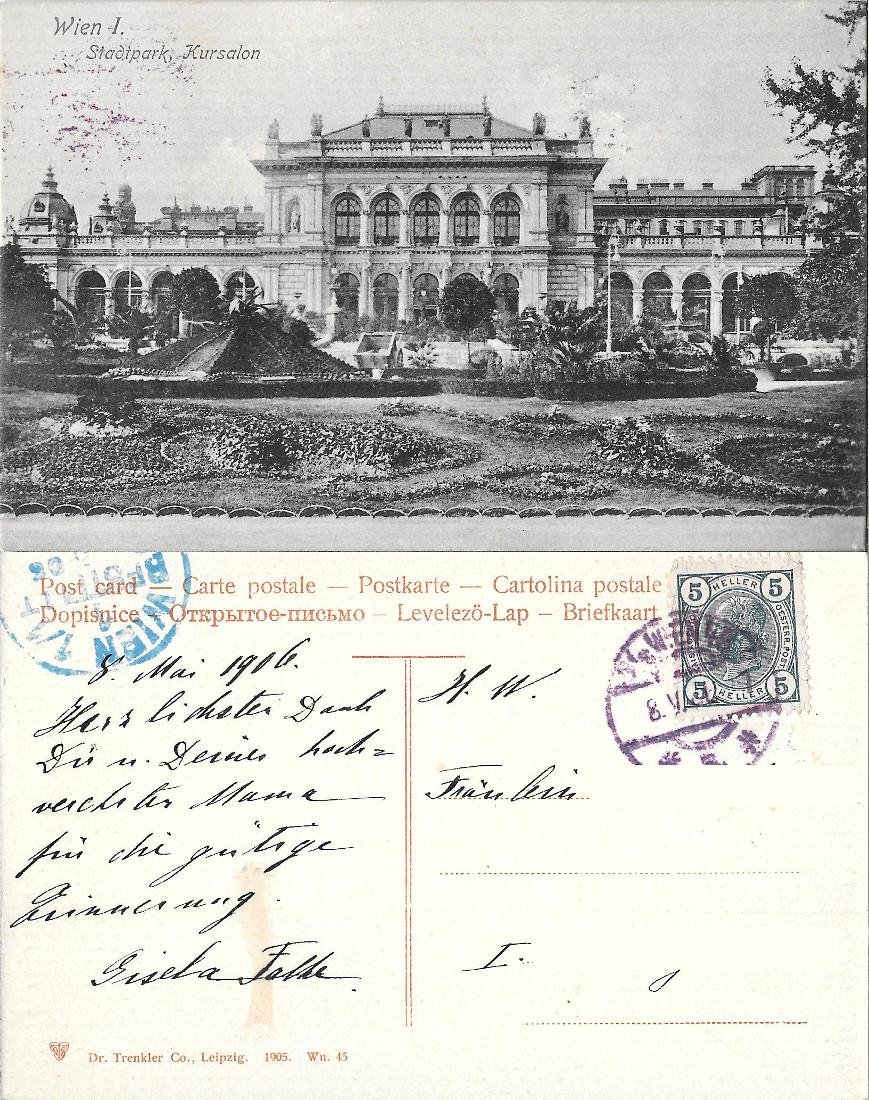 Wien I.
Stadtpark, Kursalon
Post card — Carte postale — Postkarte — Cartolina postale
Dopisnice — Открытое-письмо — Levelező-Lap — Briefkaart
WIEN 1/1
BESTELLT
06
5 HELLER 5
OESTERR. POST
5 HELLER 5
WIEN
8. V
8. Mai 1906.
Herzlichsten Dank
Dir u. Deiner hoch=
verehrten Mama
für die gütige
Erinnerung.
Gisela Falke
H. W.
Fräulein
I.
Dr. Trenkler Co., Leipzig. 1905. Wn. 45